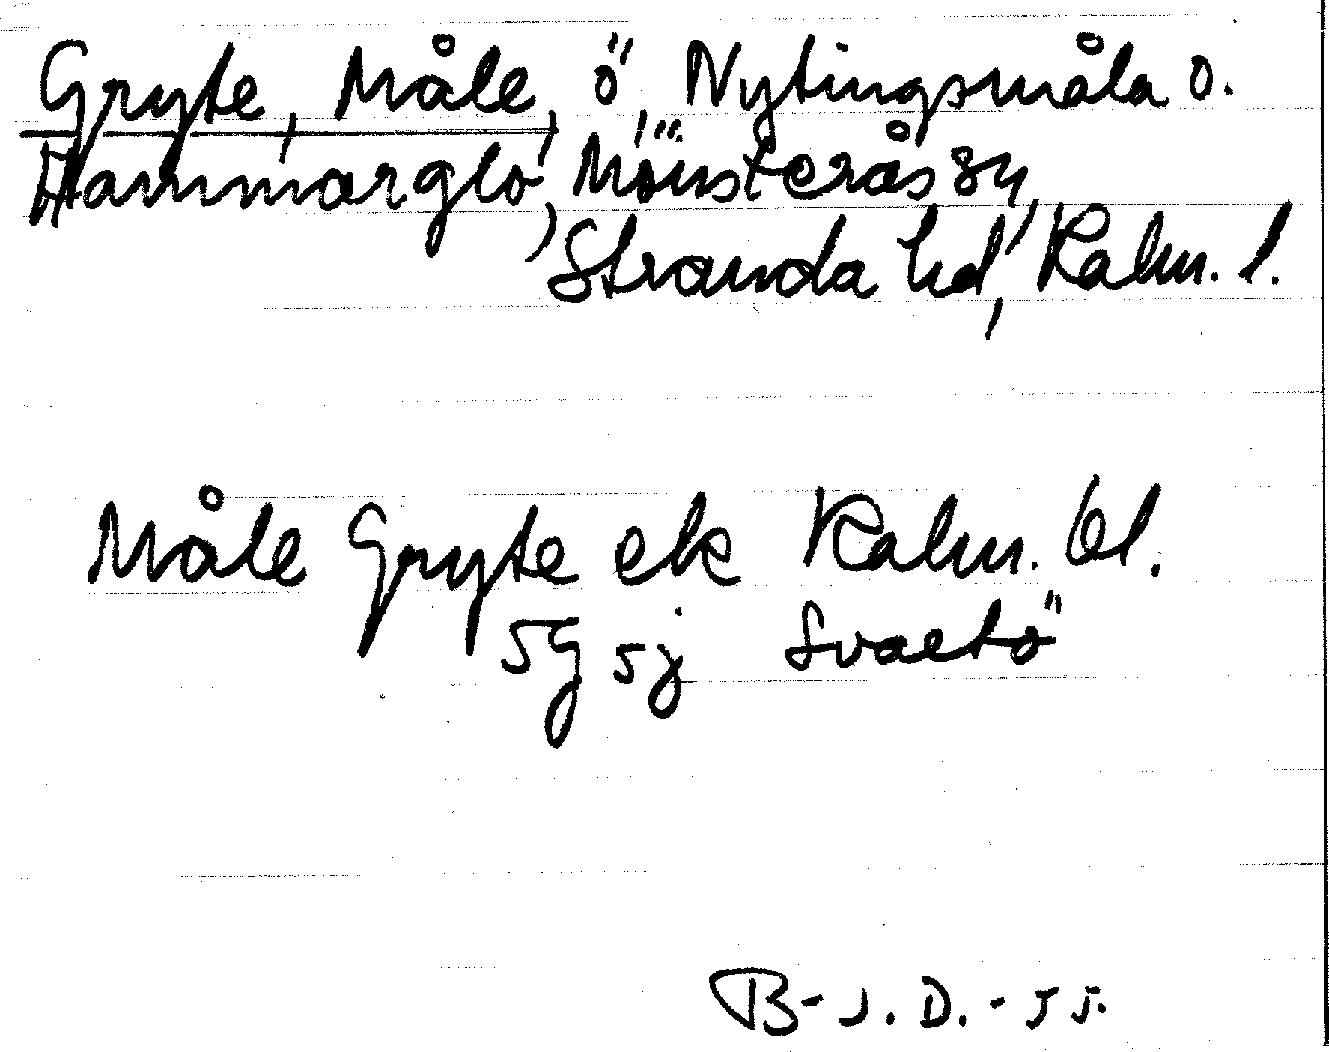 Gryte, Måle, ö, Nytingsmåla o.
Hammarglo, Mönsterås sn,
Stranda hd, Kalm. l.
Måle Gryte ek Kalm. bl.
5g 5j Svartö
B-J.D.-55.